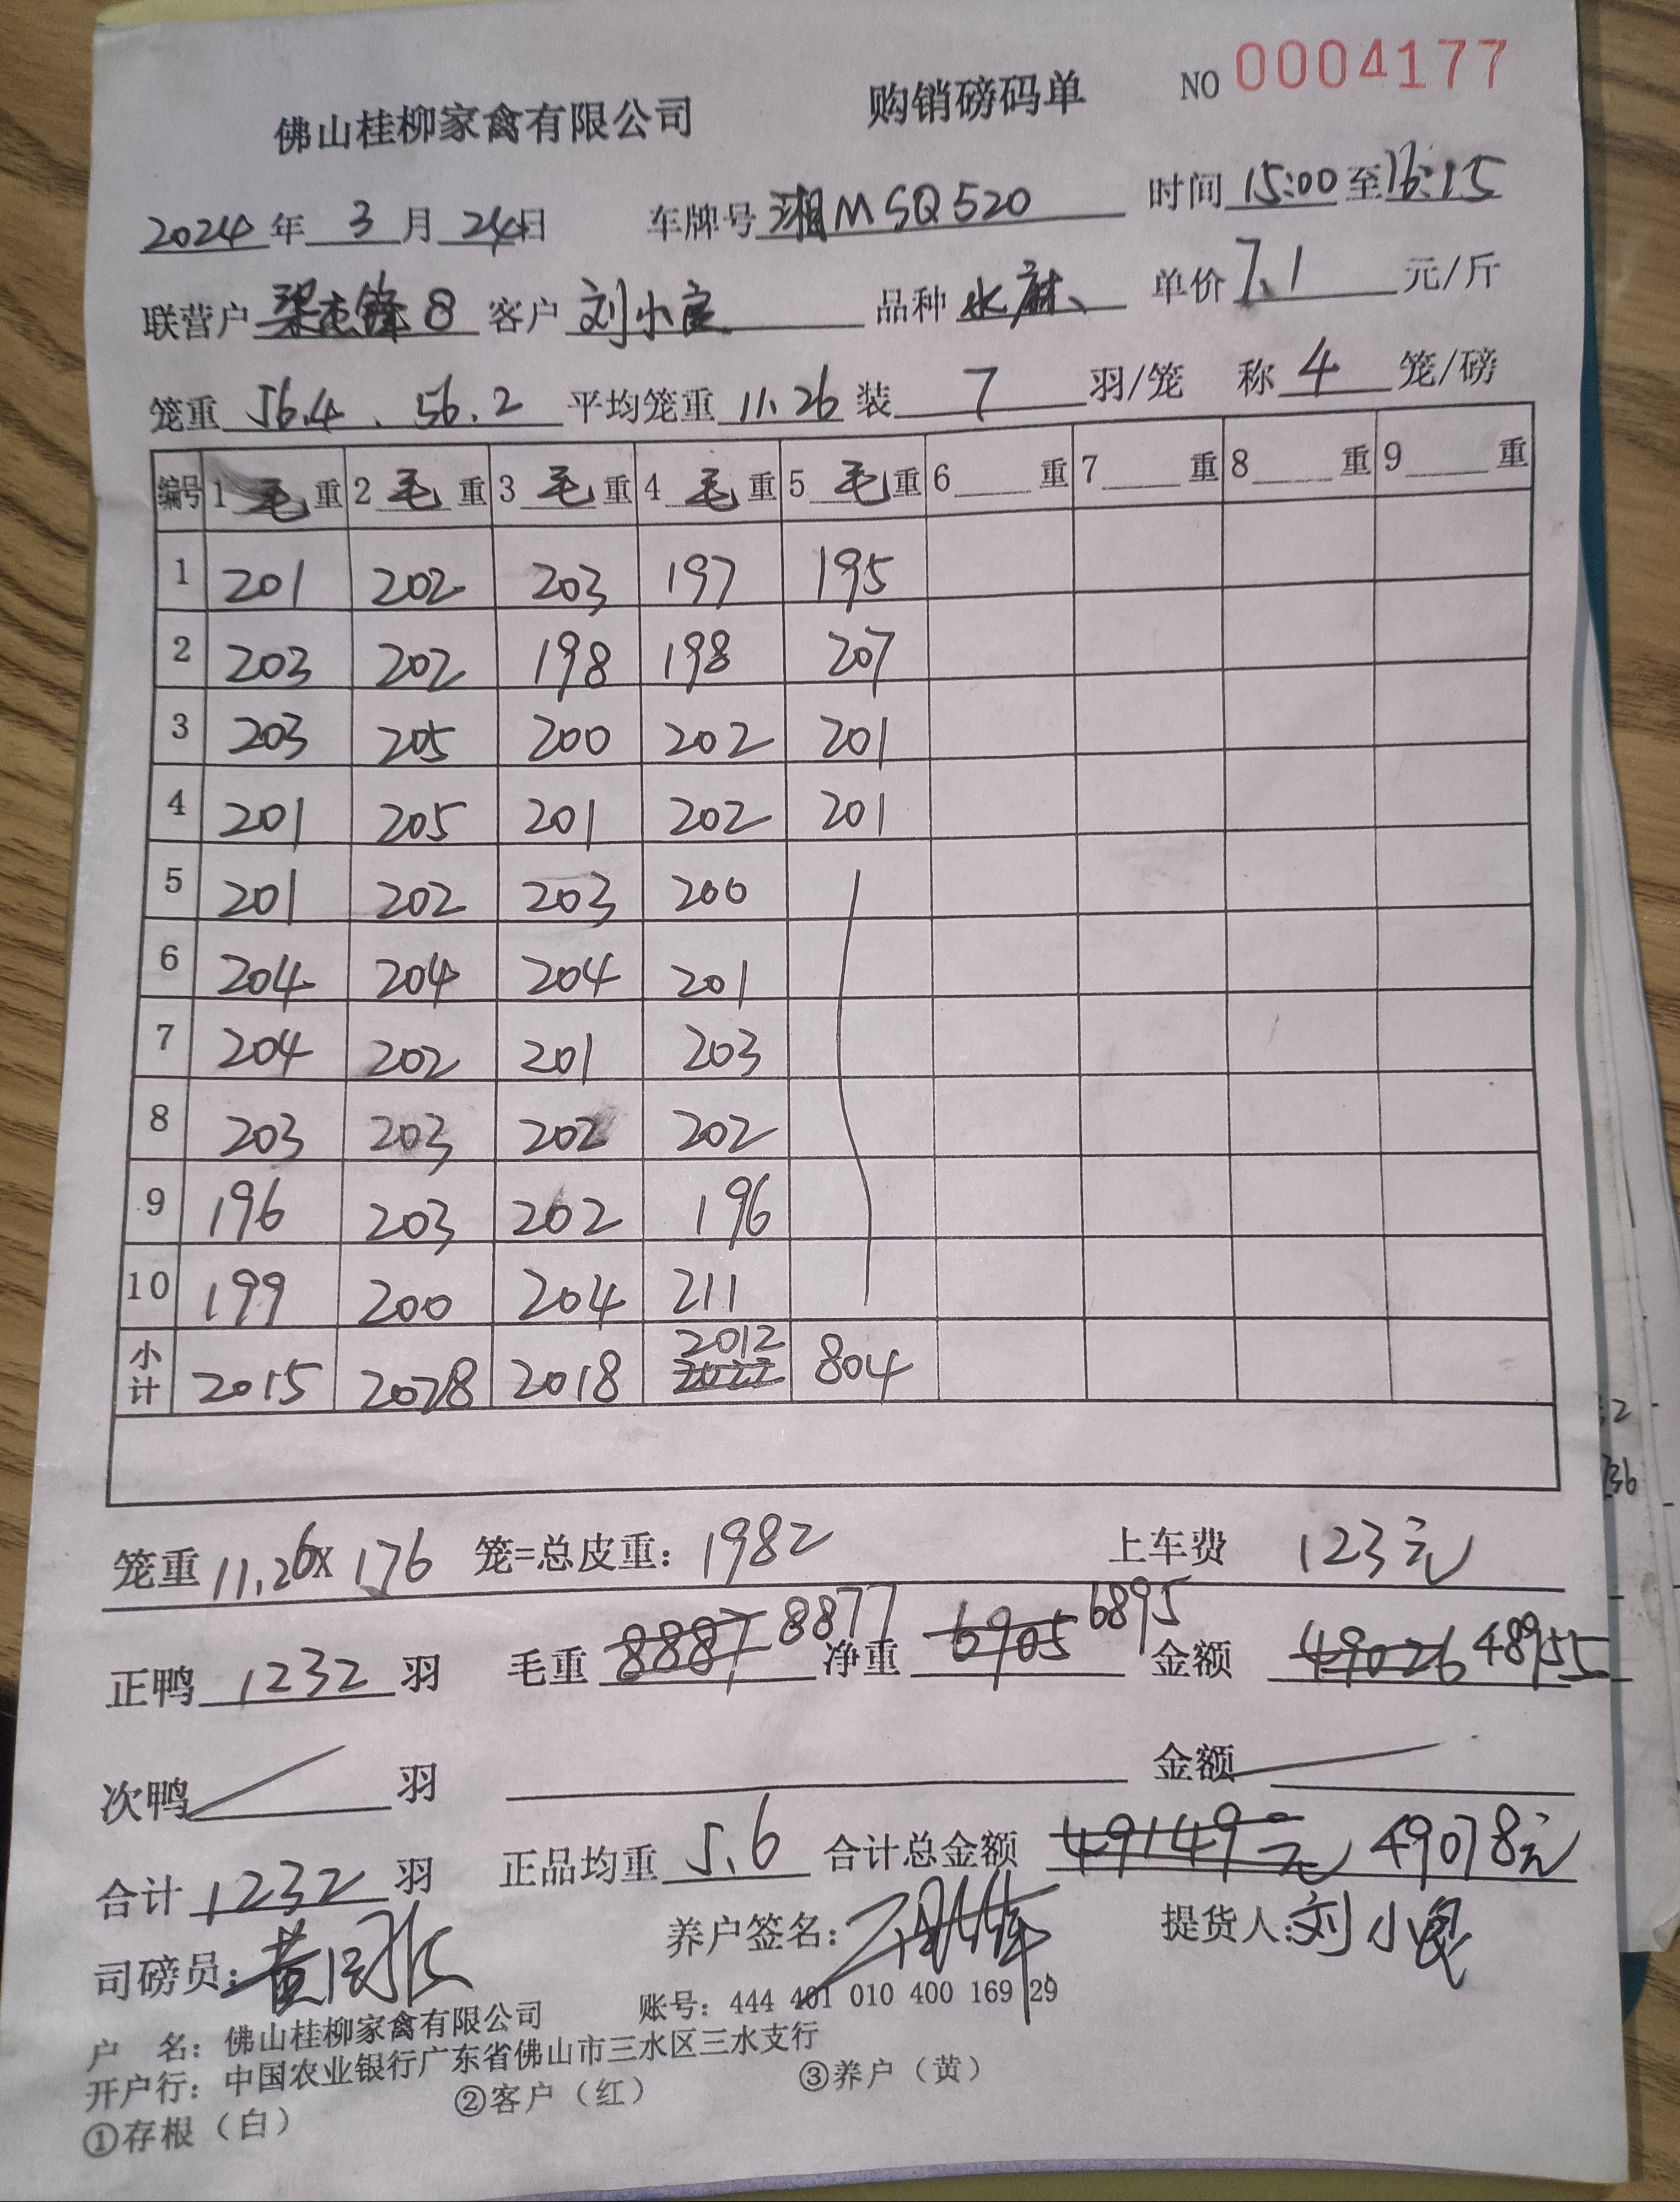 佛山桂柳家禽有限公司 购销磅码单 NO 0004177
2024年 3月 24日 车牌号 湘MSQ520 时间 15:00 至 16:15
联营户 梁杰锋8 客户 刘小良 品种 水麻 单价 7.1 元/斤
笼重 56.4、56.2 平均笼重 11.26 装 7 羽/笼 称 4 笼/磅
编号 1 毛 重 2 毛 重 3 毛 重 4 毛 重 5 毛 重 6 重 7 重 8 重 9 重
1 201 202 203 197 195
2 203 202 198 198 207
3 203 205 200 202 201
4 201 205 201 202 201
5 201 202 203 200
6 204 204 204 201
7 204 202 201 203
8 203 203 202 202
9 196 203 202 196
10 199 200 204 211
小计 2015 2028 2018 2012 804
笼重 11.26 x 176 笼=总皮重: 1982 上车费 123元
正鸭 1232 羽 毛重 8887 8877 净重 6905 6895 金额 49026 48955
次鸭 羽 金额
合计 1232 羽 正品均重 5.6 合计总金额 49149元 49078元
司磅员: 养户签名: 提货人: 刘小良
户 名: 佛山桂柳家禽有限公司 账号: 444 401 010 400 169 29
开户行: 中国农业银行广东省佛山市三水区三水支行
①存根（白） ②客户（红） ③养户（黄）